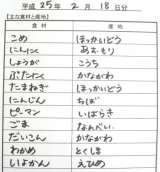 平成 25年 2月 18日分
【主な食材と産地】
食材 産地
こめ ほっかいどう
にんにく あおもり
しょうが こうち
ぶたにく かながわ
たまねぎ ほっかいどう
にんじん ちば
ピーマン いばらき
ごま なんべい
だいこん かながわ
わかめ とくしま
いよかん えひめ